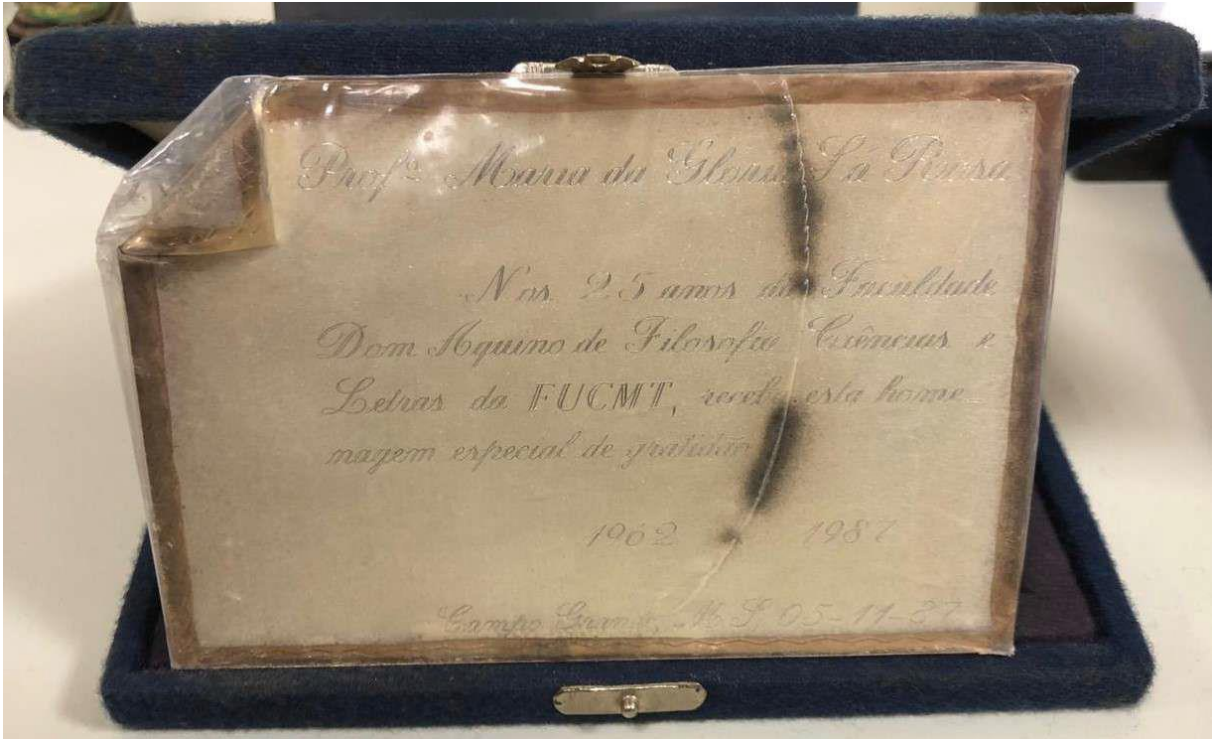 Profª Maria da Gloria Sá Rosa
Nos 25 anos da Faculdade
Dom Aquino de Filosofia Ciências e
Letras da FUCMT, recebe esta home
nagem especial de gratidão
1962 1987
Campo Grande, MS, 05-11-87